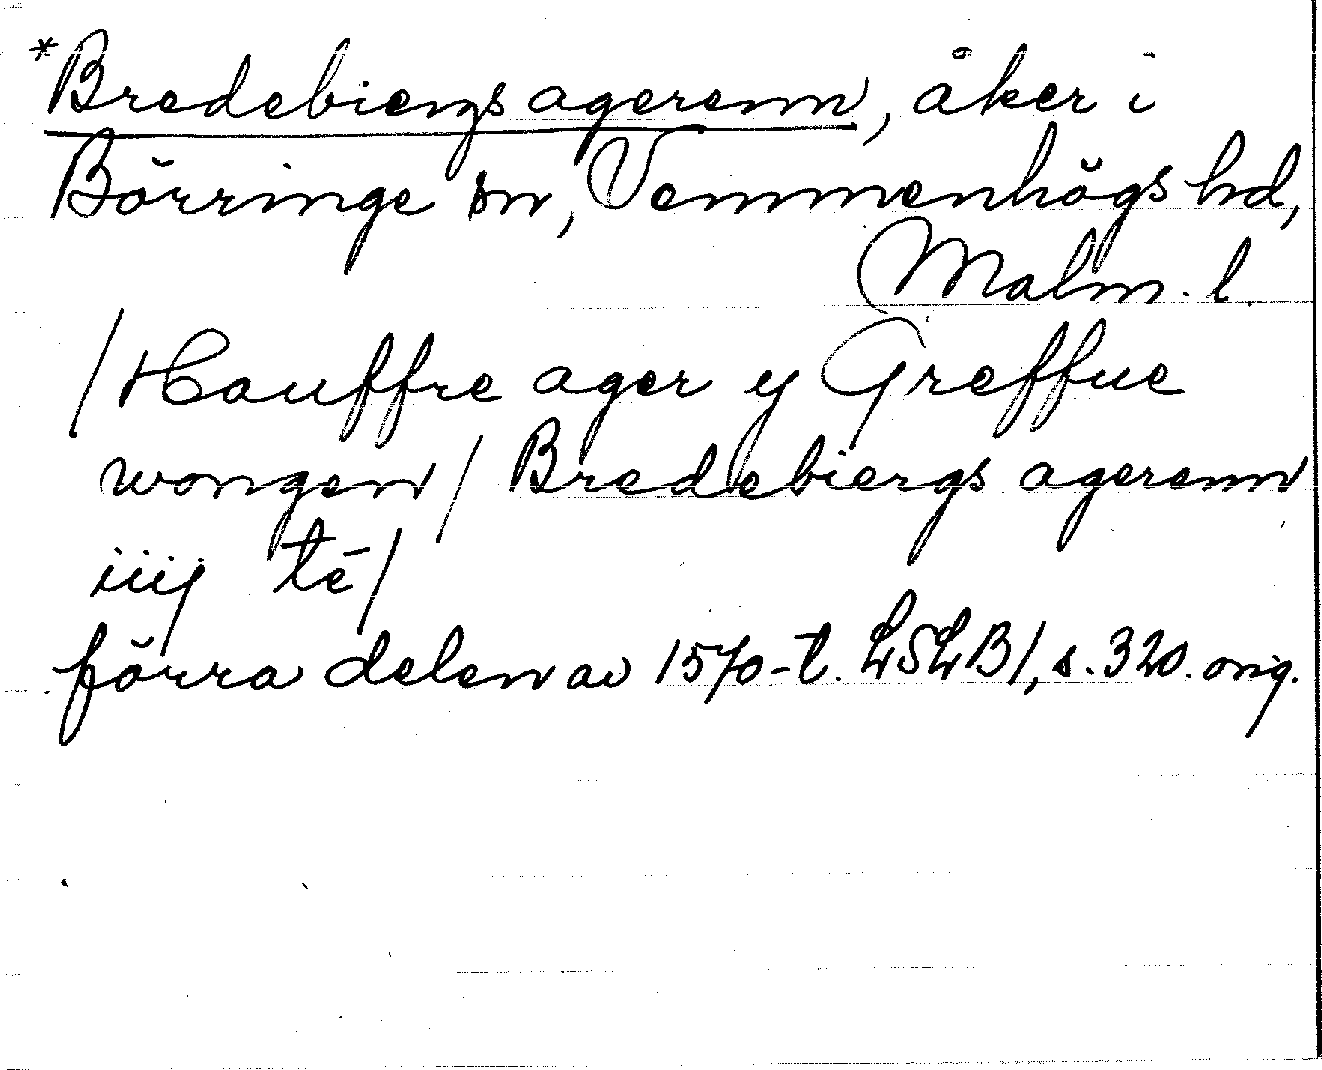 *Bredebiergs agerenn, åker i
Börringe sn, Vemmenhögs hd,
Malm. l.
/Hauffre ager y Greffue
wongen/ Bredebiergs agerenn
iiij té/
förra delen av 1570-t. LSLB1, s. 320. orig.